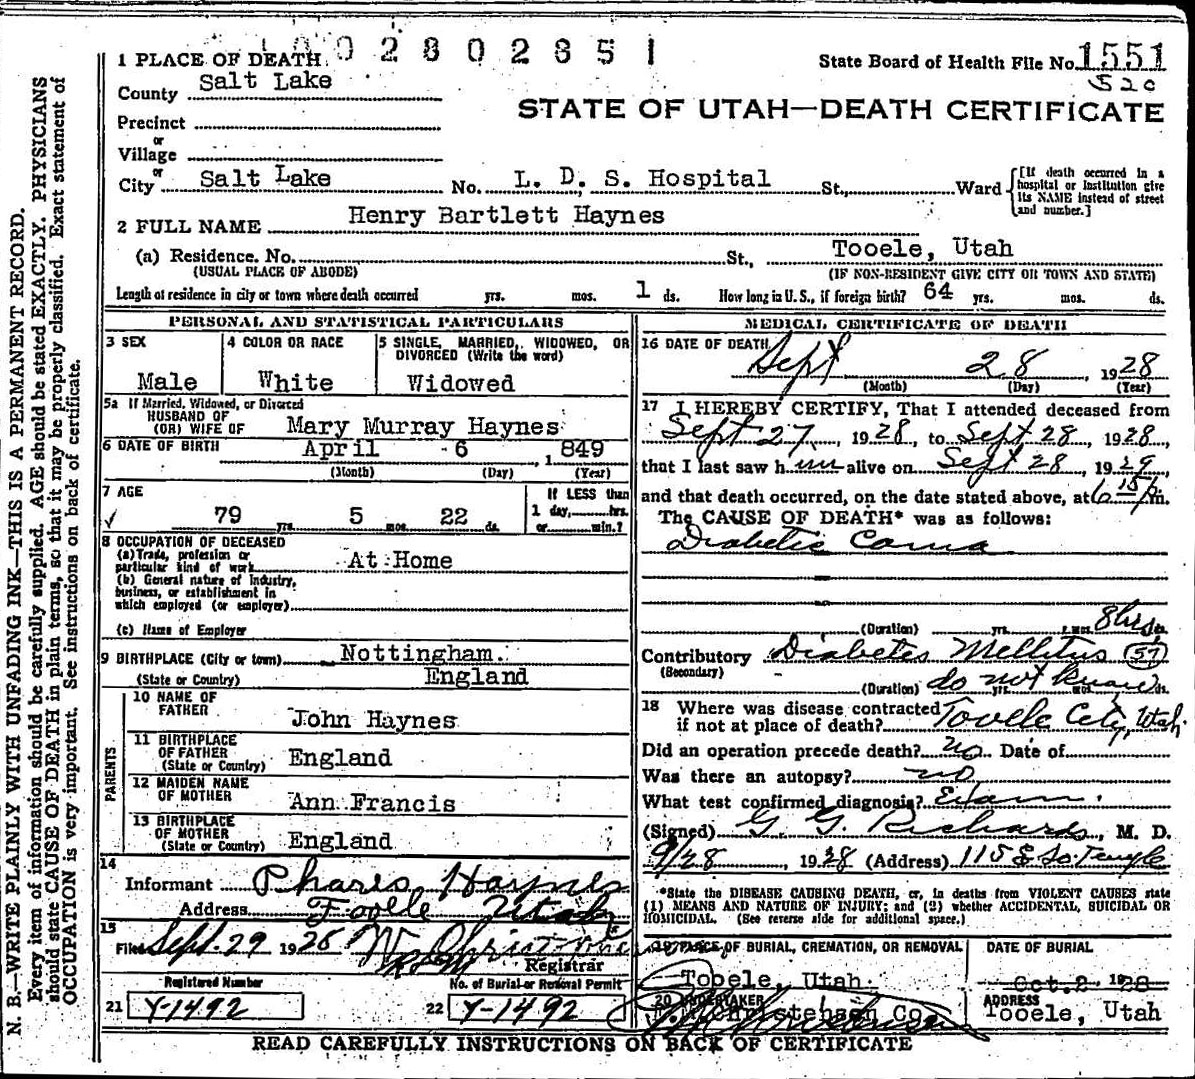 002802851
1 PLACE OF DEATH
State Board of Health File No. 1551
520
County Salt Lake
STATE OF UTAH—DEATH CERTIFICATE
Precinct
or
Village
or
City Salt Lake No. L. D. S. Hospital St., Ward
[If death occurred in a hospital or institution give its NAME instead of street and number.]
2 FULL NAME Henry Bartlett Haynes
(a) Residence. No. St., Tooele, Utah
(USUAL PLACE OF ABODE) (IF NON-RESIDENT GIVE CITY OR TOWN AND STATE)
Length of residence in city or town where death occurred yrs. mos. 1 ds. How long in U. S., if foreign birth? 64 yrs. mos. ds.
PERSONAL AND STATISTICAL PARTICULARS
3 SEX
Male
4 COLOR OR RACE
White
5 SINGLE, MARRIED, WIDOWED, OR
DIVORCED (Write the word)
Widowed
5a If Married, Widowed, or Divorced
HUSBAND OF
(OR) WIFE OF Mary Murray Haynes
6 DATE OF BIRTH April 6, 1849
(Month) (Day) (Year)
7 AGE
79 yrs. 5 mos. 22 ds.
If LESS than
1 day, hrs.
or min.?
8 OCCUPATION OF DECEASED
(a) Trade, profession or
particular kind of work At Home
(b) General nature of Industry,
business, or establishment in
which employed (or employer)
(c) Name of Employer
9 BIRTHPLACE (City or town) Nottingham.
(State or Country) England
PARENTS
10 NAME OF
FATHER John Haynes
11 BIRTHPLACE
OF FATHER
(State or Country) England
12 MAIDEN NAME
OF MOTHER Ann Francis
13 BIRTHPLACE
OF MOTHER
(State or Country) England
14
Informant Phares Haynes
Address Tooele Utah
15
Filed Sept. 29 1928
Registrar
Registered Number
21 Y-1492
No. of Burial or Removal Permit
22 Y-1492
MEDICAL CERTIFICATE OF DEATH
16 DATE OF DEATH
Sept 28, 1928
(Month) (Day) (Year)
17 I HEREBY CERTIFY, That I attended deceased from
Sept 27, 1928, to Sept 28 1928,
that I last saw him alive on Sept 28, 1929,
and that death occurred, on the date stated above, at 6 15 p.m.
The CAUSE OF DEATH* was as follows:
Diabetic Coma
(Duration) yrs. mos. 8 hrs ds.
Contributory Diabetes Mellitus 57
(Secondary)
(Duration) do not know yrs. mos. ds.
18 Where was disease contracted
if not at place of death? Tooele City, Utah
Did an operation precede death? no Date of
Was there an autopsy? no
What test confirmed diagnosis? Exam.
(Signed) G. G. Richards, M. D.
9/28, 1928 (Address) 115 E So. Temple
*State the DISEASE CAUSING DEATH, or, in deaths from VIOLENT CAUSES state
(1) MEANS AND NATURE OF INJURY; and (2) whether ACCIDENTAL, SUICIDAL OR
HOMICIDAL. (See reverse side for additional space.)
19 PLACE OF BURIAL, CREMATION, OR REMOVAL
Tooele, Utah.
DATE OF BURIAL
Oct. 2 1928
20 UNDERTAKER
Christensen Co.
ADDRESS
Tooele, Utah
READ CAREFULLY INSTRUCTIONS ON BACK OF CERTIFICATE
N. B.—WRITE PLAINLY WITH UNFADING INK—THIS IS A PERMANENT RECORD.
Every item of information should be carefully supplied. AGE should be stated EXACTLY. PHYSICIANS
should state CAUSE OF DEATH in plain terms, so that it may be properly classified. Exact statement of
OCCUPATION is very important. See instructions on back of certificate.